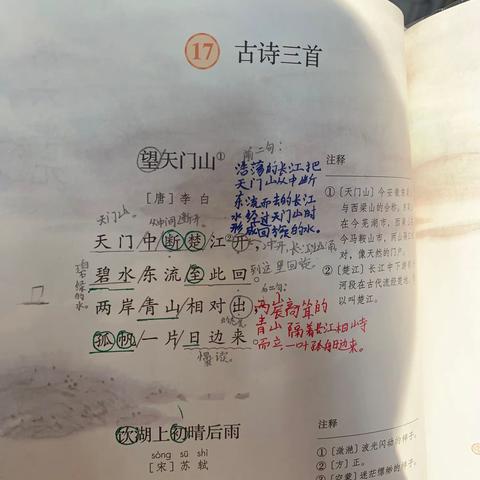 17 古诗三首
望天门山①
[唐] 李白
天门山
从中间断开
天门/中断/楚江②开,
碧水/东流/至此回。
到这里回旋。
两岸/青山/相对出,
孤帆/一片/日边来。
慢读。
前二句:
浩荡的长江把
天门山从中断
东流而去的长江
水经过天门山时
形成回旋的水。
后二句:
两岸高耸的
青山隔着长江相山寺
而立一叶孤舟日边来。
饮湖上初晴后雨
sòng sū shì
[宋] 苏轼
注释
①[天门山]今安徽
与西梁山的合称,
在今芜湖市,西梁
今马鞍山市,两山隔
对,像天然的门户。
②[楚江]长江中下游
河段在古代流经楚地,
以叫楚江。
注释
①[潋滟]波光闪动的样子。
②[方]正。
③[空蒙]迷茫缥缈的样子。